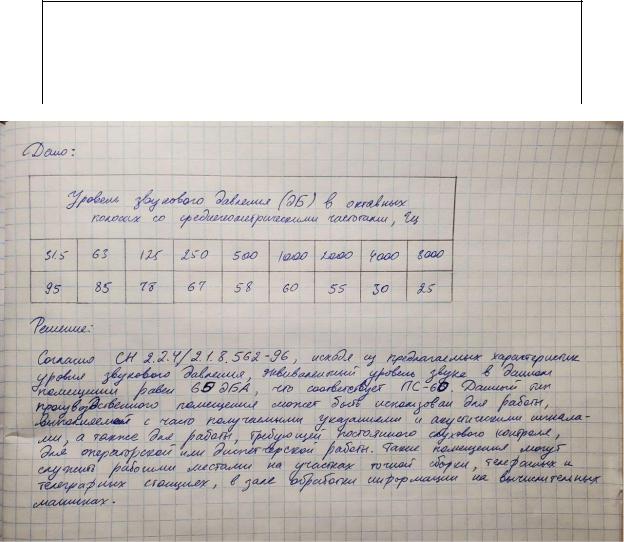 Дано:
Уровень звукового давления (дБ) в октавных
полосах со среднегеометрическими частотами, Гц
31.5 63 125 250 500 1000 2000 4000 8000
95 85 78 67 58 60 55 30 25
Решение:
Согласно СН 2.2.4/2.1.8.562-96, исходя из предлагаемых характеристик
уровня звукового давления, эквивалентный уровень звука в данном
помещении равен 65 дБА, что соответствует ПС-60. Данный тип
производственного помещения может быть использован для работы,
выполняемой с часто получаемыми указаниями и акустическими сигнала-
ми, а также для работы, требующей постоянного слухового контроля,
для операторской или диспетчерской работы. Такие помещения могут
служить рабочими местами на участках точной сборки, телефонных и
телеграфных станциях, в зале обработки информации на вычислительных
машинах.